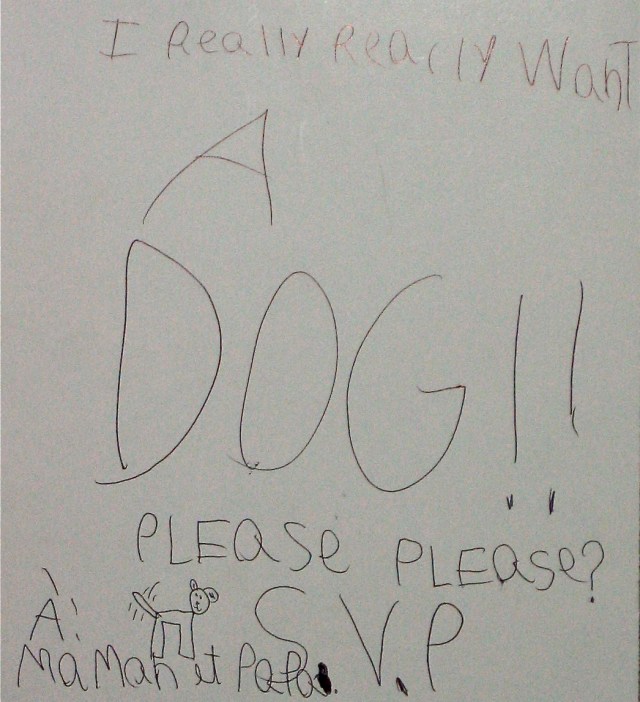 I Really Really Want
A
DOG!!
PLEASE PLEASE?
S.V.P
À:
MaMan et Papa.